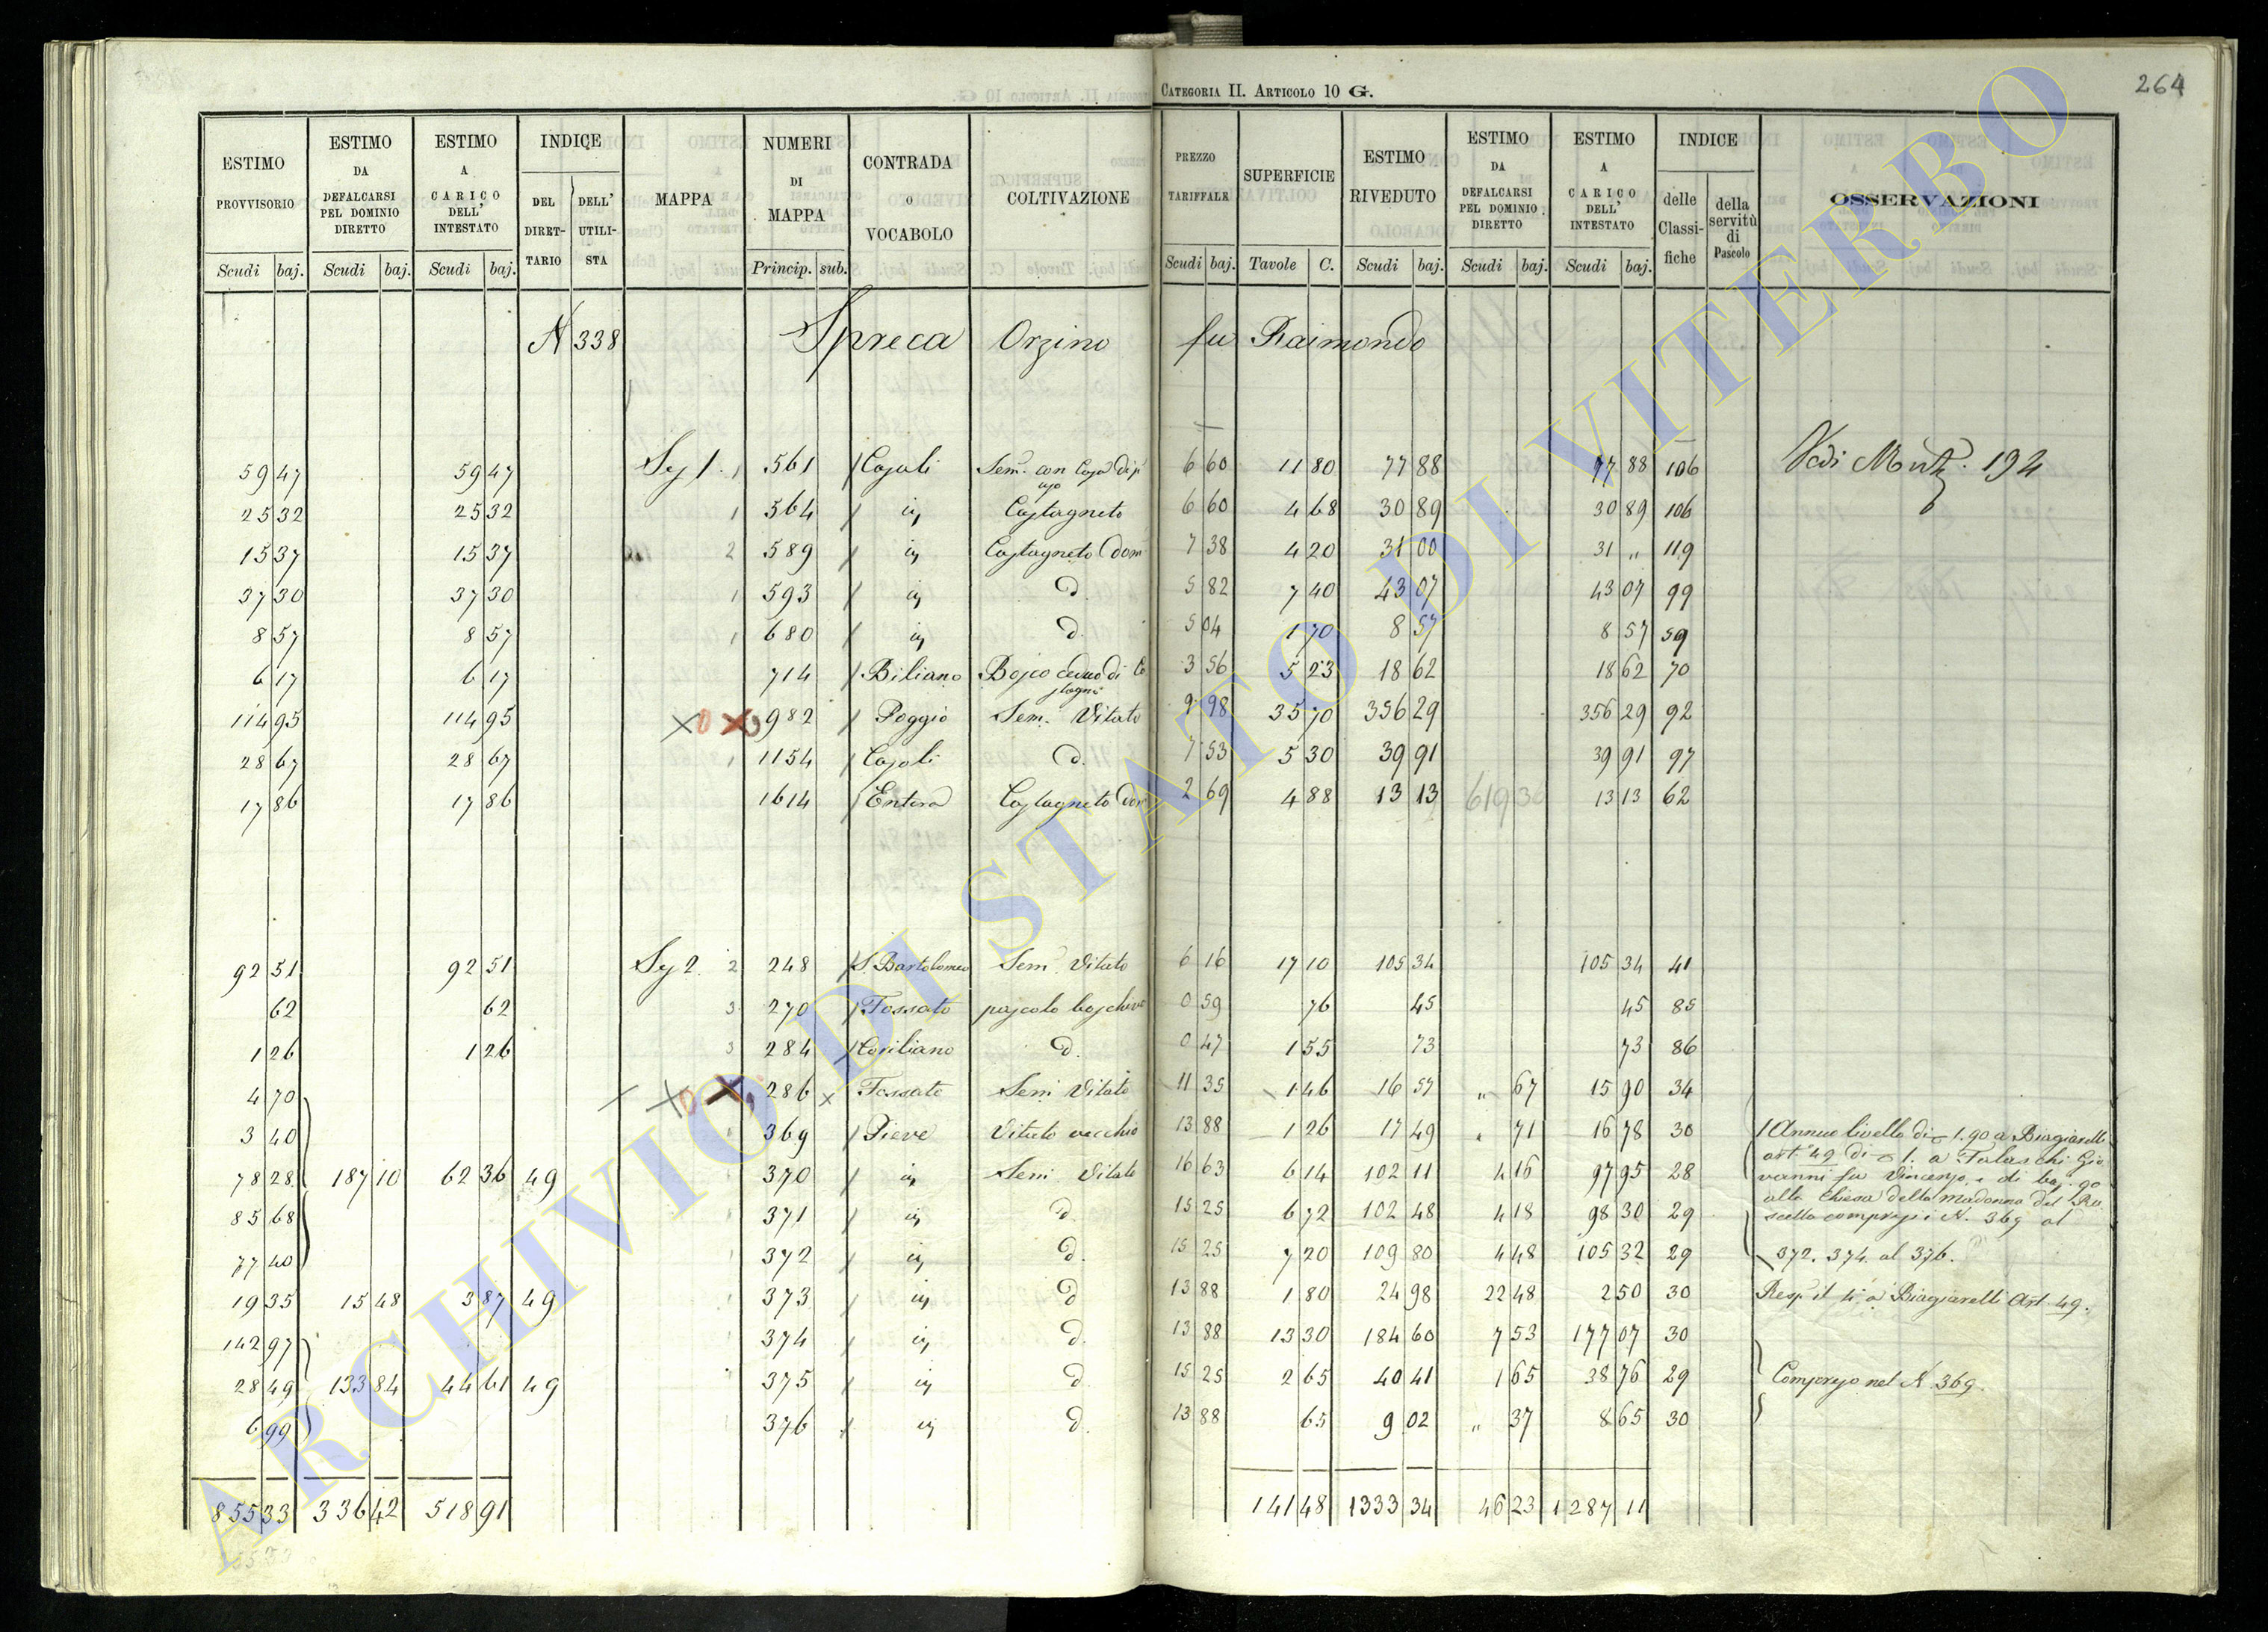 CATEGORIA II. ARTICOLO 10 G.
264
ESTIMO PROVVISORIO Scudi baj.
ESTIMO DA DEFALCARSI PEL DOMINIO DIRETTO Scudi baj.
ESTIMO A CARICO DELL' INTESTATO Scudi baj.
INDICE DEL DIRETTARIO DELL' UTILISTA
MAPPA
NUMERI DI MAPPA Princip. sub.
CONTRADA O VOCABOLO
COLTIVAZIONE
PREZZO TARIFFALE Scudi baj.
SUPERFICIE Tavole C.
ESTIMO RIVEDUTO Scudi baj.
ESTIMO DA DEFALCARSI PEL DOMINIO DIRETTO Scudi baj.
ESTIMO A CARICO DELL' INTESTATO Scudi baj.
INDICE delle Classifiche della servitù di Pascolo
OSSERVAZIONI
N 338 Spreca Orzino fu Raimondo
59 47 59 47 Sez 1. 1 561 / Casali Sem. con Case 6 60 11 80 77 88 77 88 106 Vedi 194
25 32 25 32 1 564 / Castagneto 6 60 4 68 30 89 30 89 106
15 37 15 37 2 589 / Castagneto Dom 7 38 4 20 31 00 31 „ 119
37 30 37 30 1 593 / d. 5 82 7 40 43 07 43 07 99
8 57 8 57 1 680 / d. 5 04 1 70 8 57 8 57 59
6 17 6 17 714 / Biliano Bosco ceduo di Castagni 3 56 5 23 18 62 18 62 70
114 95 114 95 982 / Poggio Sem. Vitato 9 98 35 70 356 29 356 29 92
28 67 28 67 1 1154 / Casali d. 7 53 5 30 39 91 39 91 97
17 86 17 86 1614 / Entera Castagneto Dom 2 69 4 88 13 13 619 30 13 13 62
92 51 92 51 Sez 2. 2 248 / S. Bartolomeo Sem. Vitato 6 16 17 10 105 34 105 34 41
62 62 3 270 / Fossato pascolo boschivo 0 59 76 45 45 85
1 26 1 26 3 284 / Coriliano d. 0 47 1 55 73 73 86
4 70 286 x Fossato Sem. Vitato 11 35 1 46 16 57 „ 67 15 90 34
3 40 369 / Pieve Vitato vecchio 13 88 1 26 17 49 „ 71 16 78 30 Annuo livello di 1.90 a Biagiarelli
art. 49 di 1. a Falaschi Gio
78 28 187 10 62 36 49 370 / Sem. Vitato 16 63 6 14 102 11 4 16 97 95 28 vanni fu Vincenzo, e di baj. 90
alla Chiesa della Madonna del Ru
85 68 371 / d. 15 25 6 72 102 48 4 18 98 30 29 scello compresi i N. 369 al
77 40 372 / d. 15 25 7 20 109 80 4 48 105 32 29 372. 374. al 376.
19 35 15 48 3 87 49 373 / d 13 88 1 80 24 98 22 48 2 50 30 Resp. il 4° a Biagiarelli Art. 49.
142 97 374 / d. 13 88 13 30 184 60 7 53 177 07 30
28 49 133 84 44 61 49 375 / d. 15 25 2 65 40 41 1 65 38 76 29 Compreso nel N. 369.
6 99 376 / d. 13 88 65 9 02 „ 37 8 65 30
855 33 336 42 518 91 141 48 1333 34 46 23 1287 11
ARCHIVIO DI STATO DI VITERBO